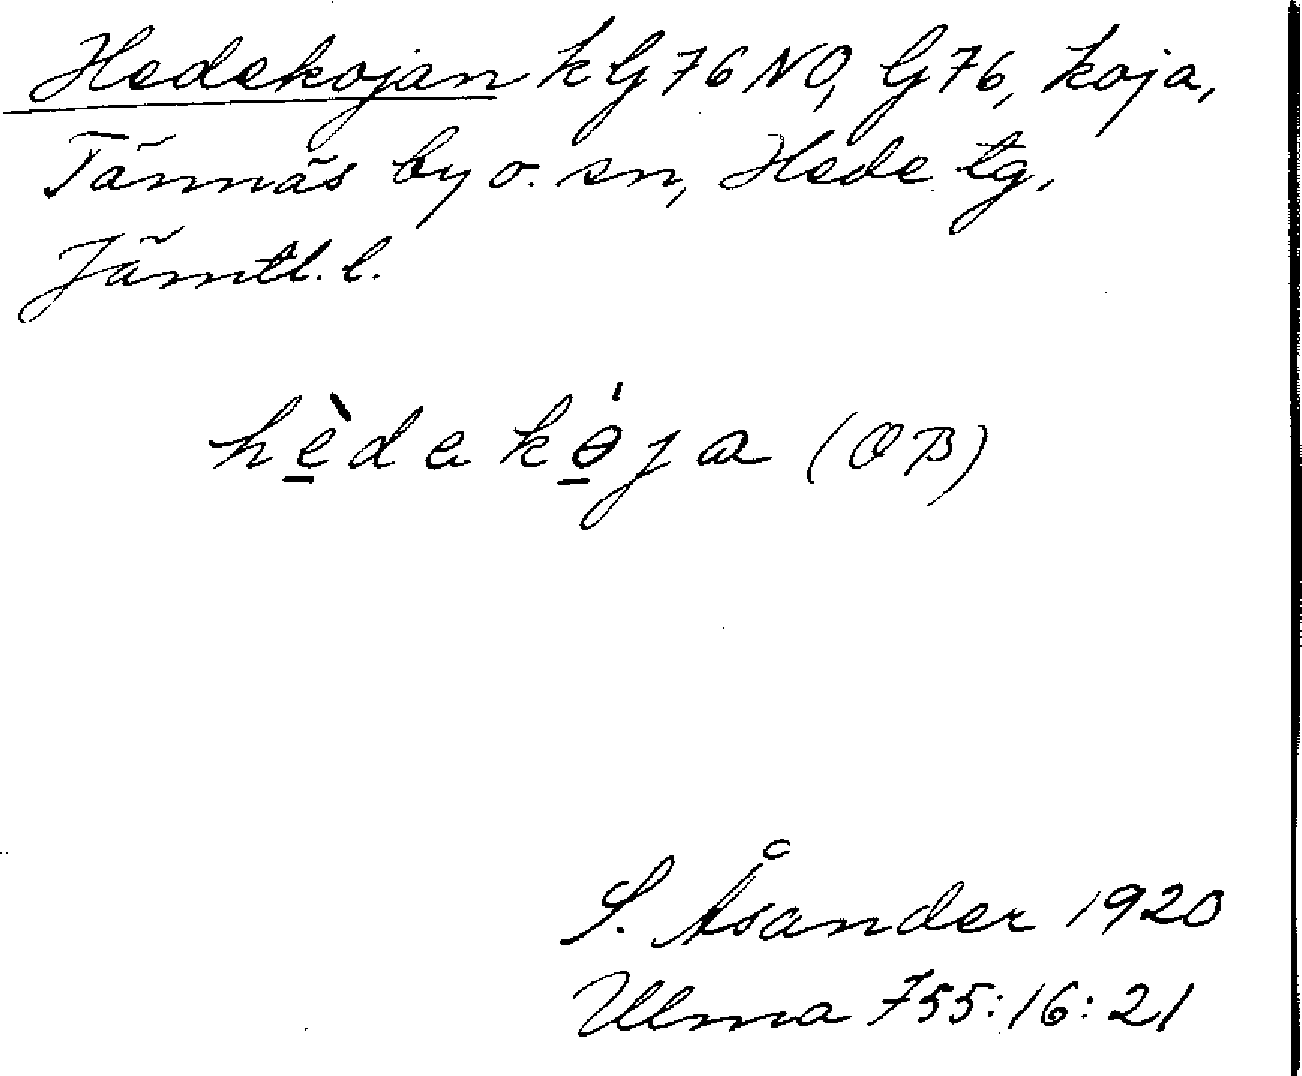 Hedekojan k G 76 NO, G 76, koja,
Tännäs by o. sn, Hede tg,
Jämtl. l.
hè̱dekɵ̱́ja (OB)
S. Åsander 1920
Ulma 755:16:21